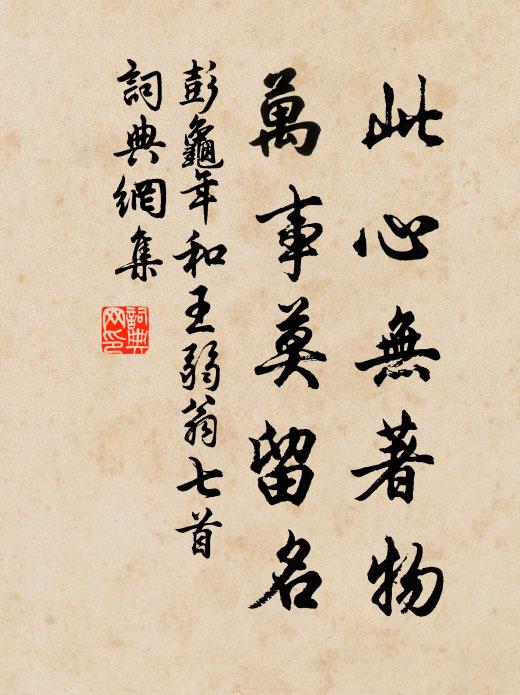 此心無著物
萬事莫留名
彭龜年和王弱翁七首
詞典網集
詞典网印